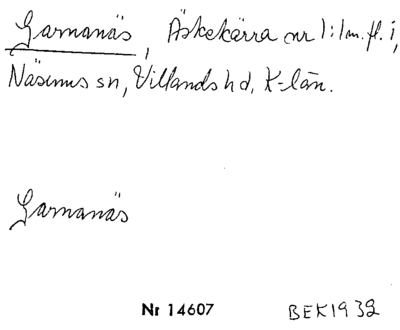 Garnanäs, Äskekärra nr 1:1 m.fl. i,
Näsums sn, Villands hd, K-län.
Garnanäs
Nr 14607 BEK1932